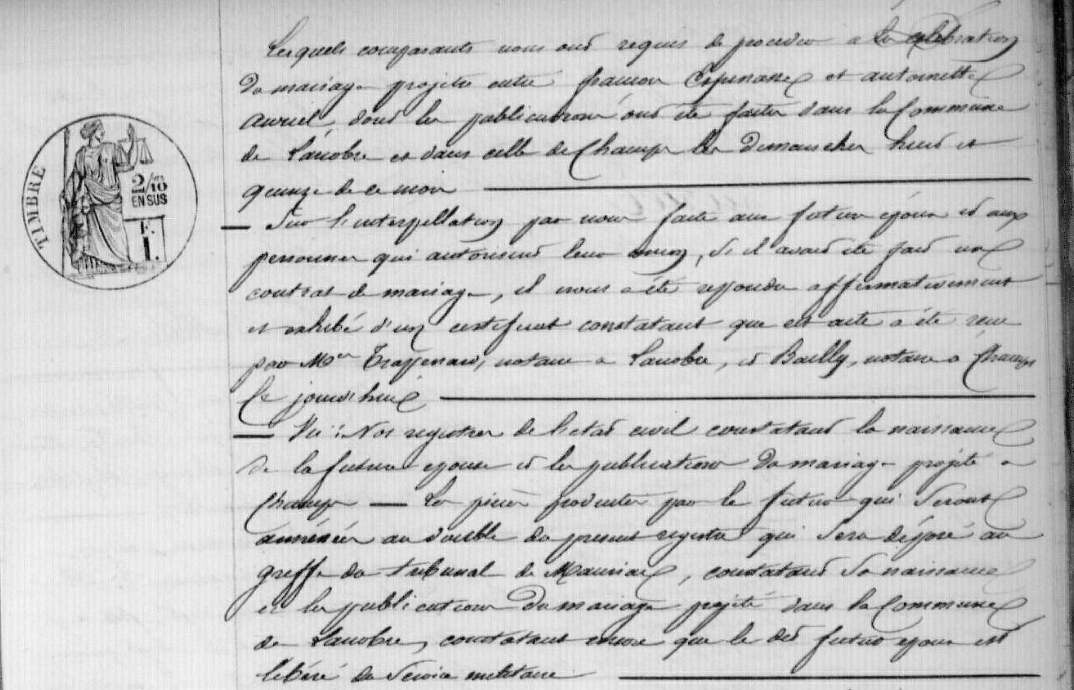 Lesquels comparants nous ont requis de procéder à la célébration
du mariage projeté entre françois Espinasse et antoinette
auriel, dont les publications ont été faites dans la Commune
de Lanobre et dans celle de Champs les Dimanches huit et
quinze de ce mois
Sur l'interpellation par nous faite aux futurs époux et aux
personnes qui autorisent leur union, s'il avait été fait un
contrat de mariage, il nous a été répondu affirmativement
et exhibé d'un certificat constatant que cet acte a été reçu
par Mes notaire à Lanobre, et Bailly, notaire à Champs
le jourd'hui
Vu : Nos registres de l'état civil constatant la naissance
de la future épouse et les publications du mariage projeté à
Champs — Les pièces produites par le futur qui seront
annexées au double du présent registre qui sera déposé au
greffe du tribunal de Mauriac, constatant sa naissance
et les publications du mariage projeté dans la Commune
de Lanobre, constatant encore que le dit futur époux est
libéré du service militaire
TIMBRE
2/10
EN SUS
F.
1.